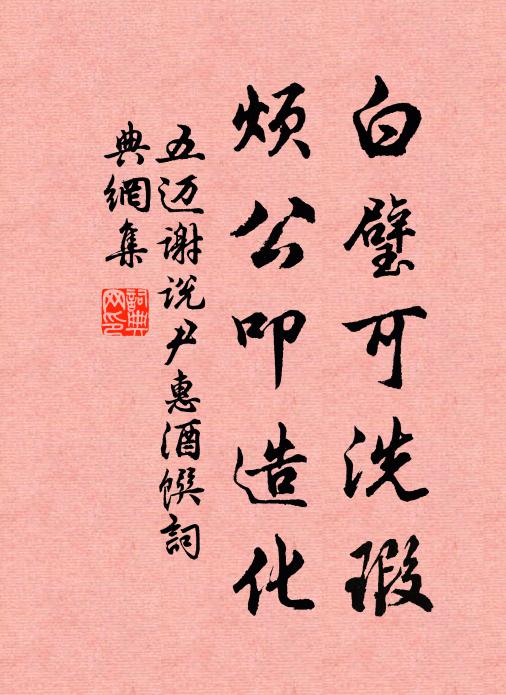 白璧可洗瑕
烦公叩造化
五迈谢说尹惠酒馔词
典網集
詞典
网印